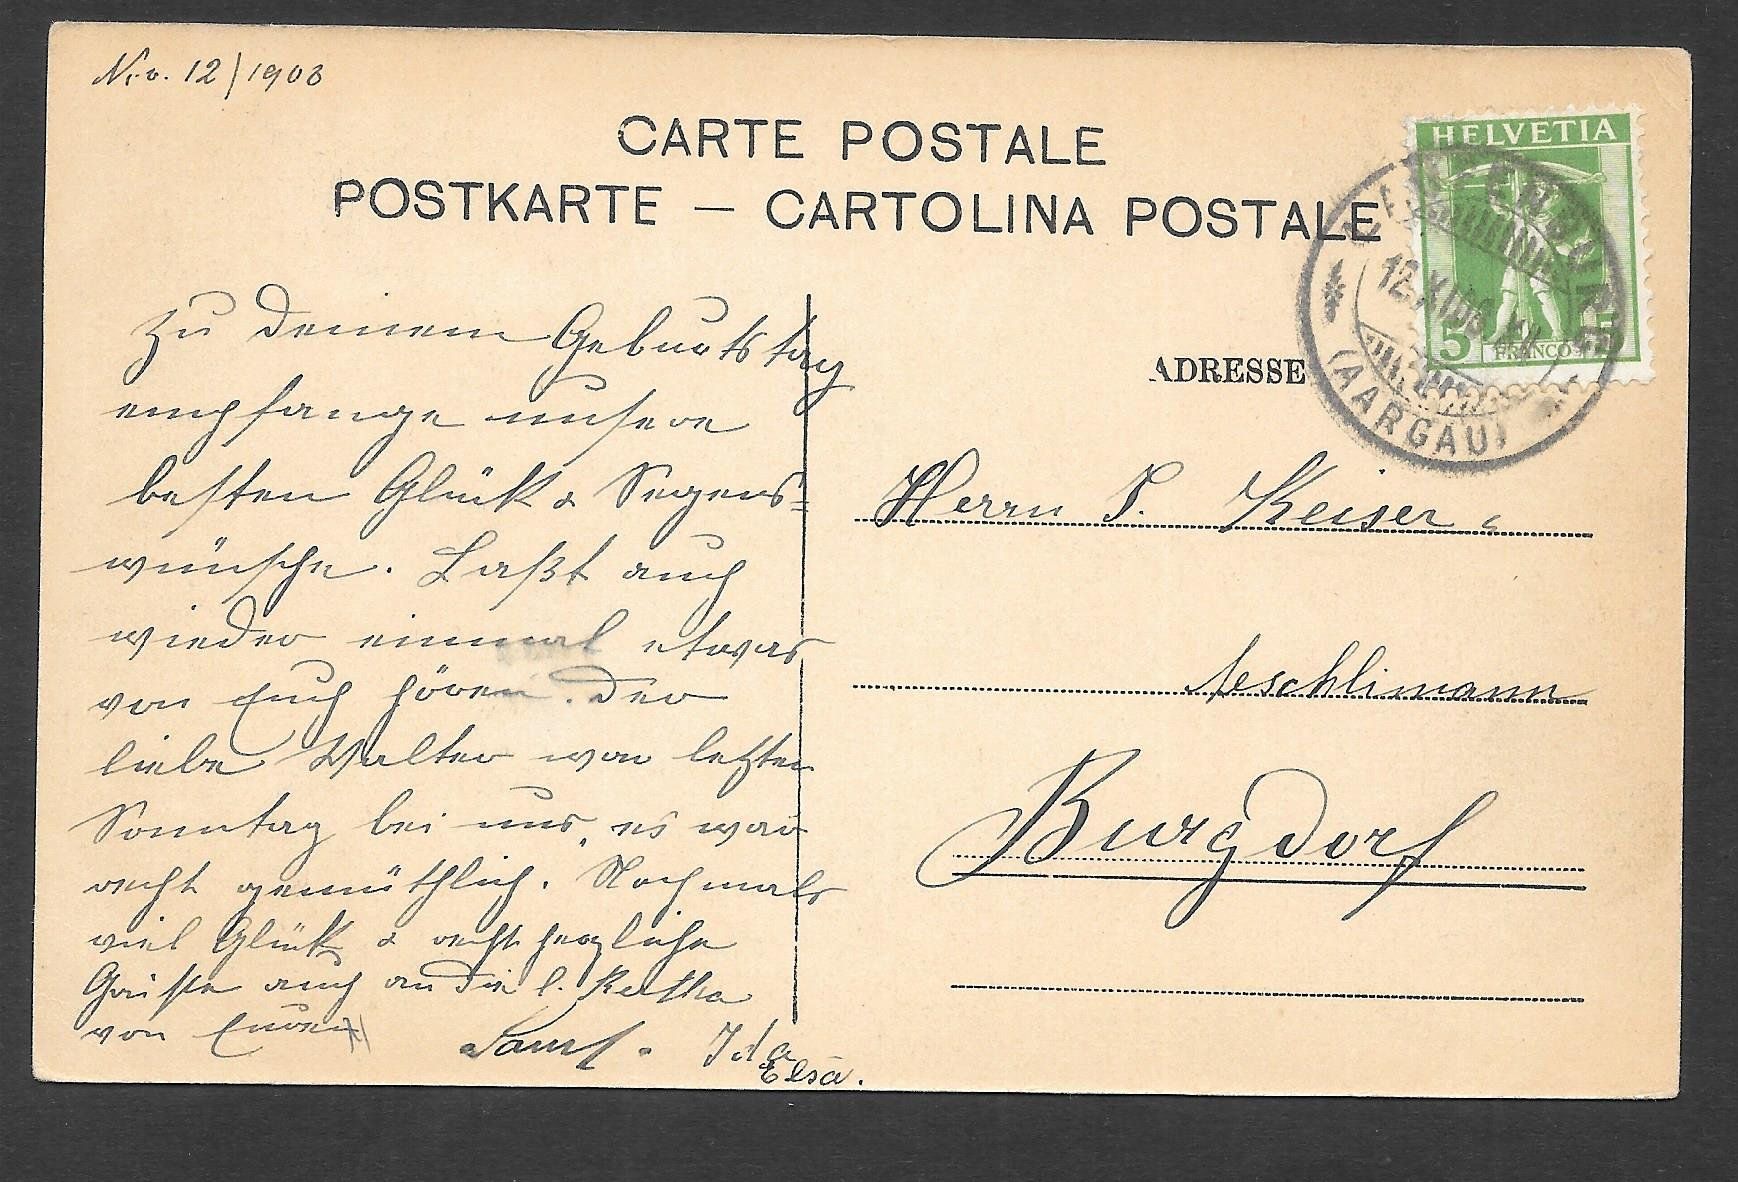 Nov. 12/1908
CARTE POSTALE
POSTKARTE — CARTOLINA POSTALE
HELVETIA
5 5
FRANCO
12.XI.08
(AARGAU)
ADRESSE
Zu deinem Geburtstag
empfange unsere
besten Glück & Segens=
wünsche. Laßt auch
wieder einmal etwas
von Euch hören. Der
liebe Walter war letzten
Sonntag bei uns, es war
recht gemüthlich. Nochmals
viel Glück & recht herzliche
Grüße auch an die l. Bertha
von Euren
Ida
Elsa.
Herrn J. Keiser
Aeschlimann
Burgdorf